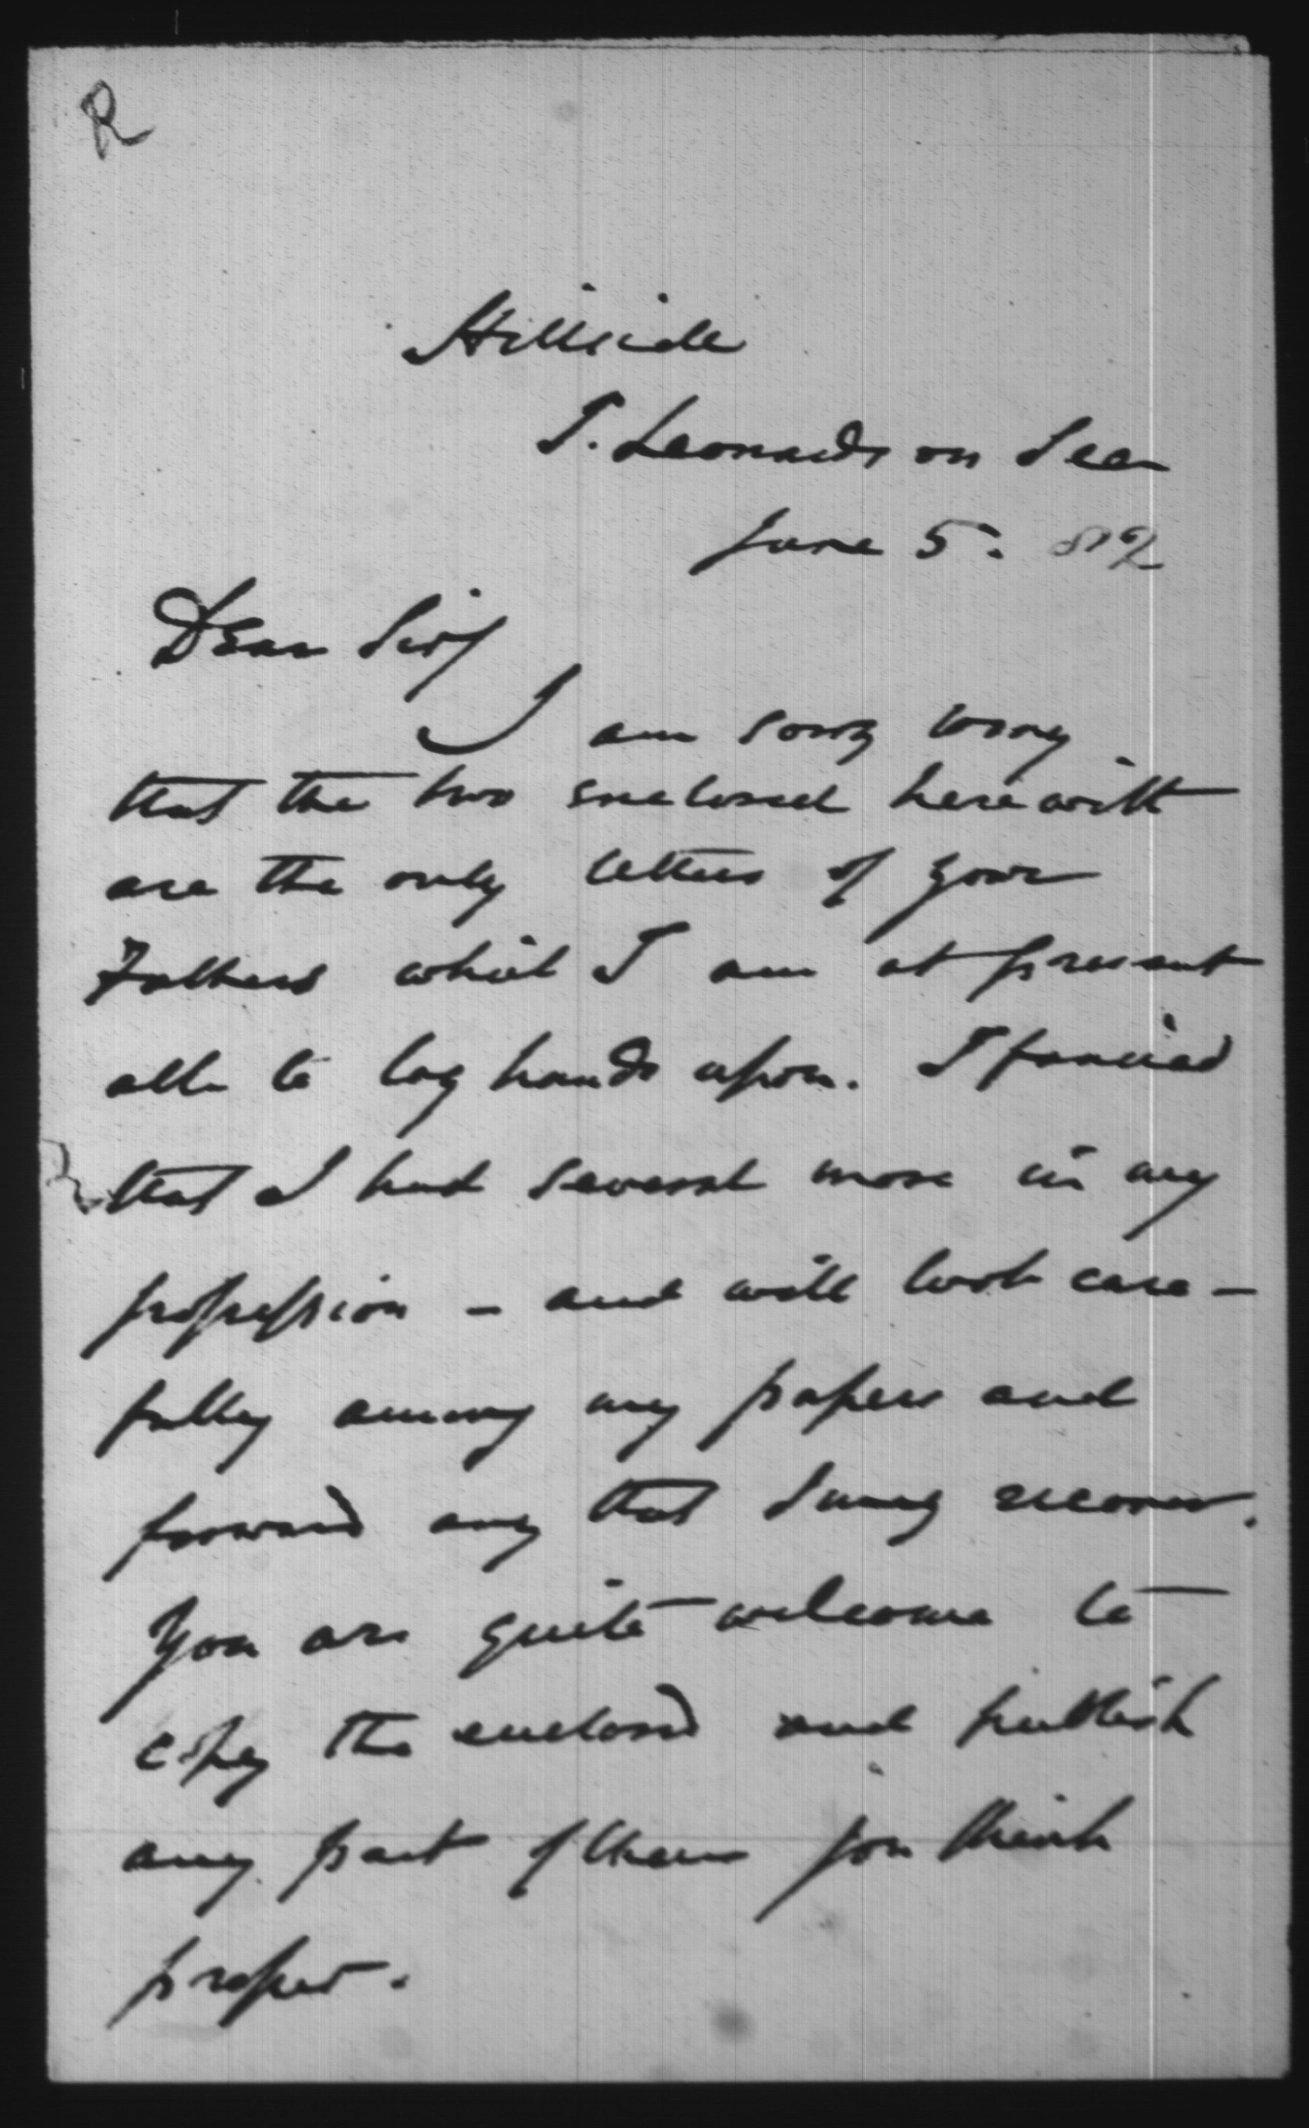 R
Hillside
S. Leonards on Sea
June 5. 82
Dear Sir/
I am sorry
that the two enclosed herewith
are the only letters of your
Fathers which I am at present
able to lay hands upon. I fancied
that I had several more in my
possession – and will look care-
fully among my papers and
forward any that I may recover.
You are quite welcome to
copy the enclosed and publish
any part of them you think
proper.